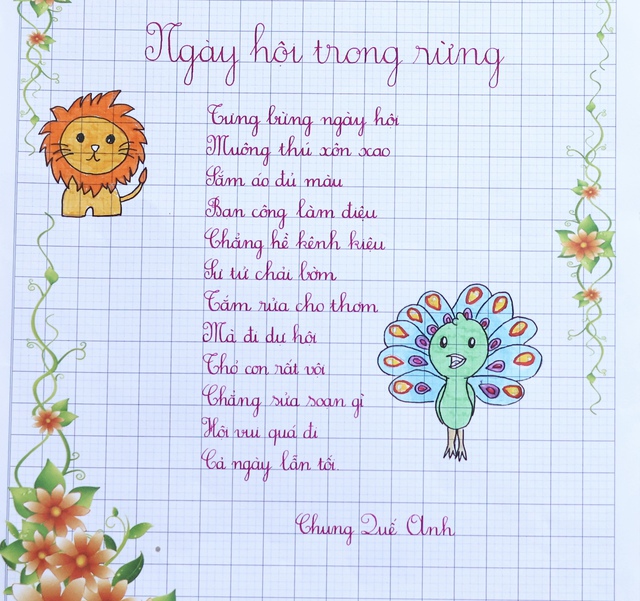 Ngày hội trong rừng
Tưng bừng ngày hội
Muông thú xôn xao
Sắm áo đủ màu
Ban công làm điệu
Chẳng hề kênh kiệu
Sư tử chải bờm
Tắm rửa cho thơm
Mà đi dự hội
Thỏ con rất vội
Chẳng sửa soạn gì
Hội vui quá đi
Cả ngày lẫn tối.
Chung Quế Anh